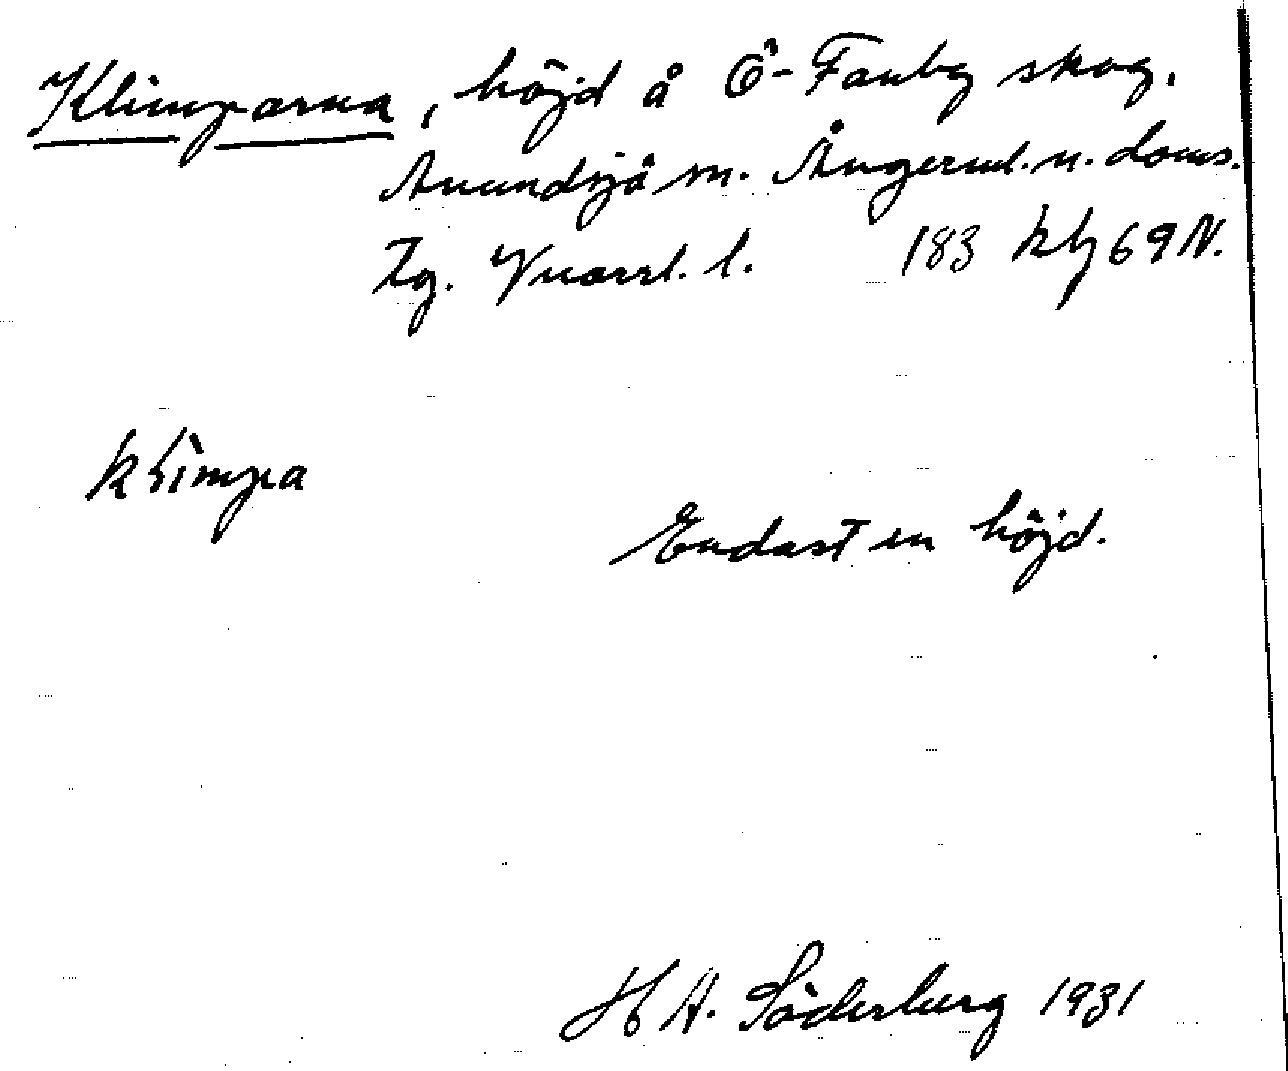 Klimparna, höjd å Ö-Fanby skog.
Anundsjö sn. Ångerml. n. doms.
Zg. Vnasrl. l. 183 kbg 69 N.
klimpa
Endast en höjd.
H A. Söderberg 1931